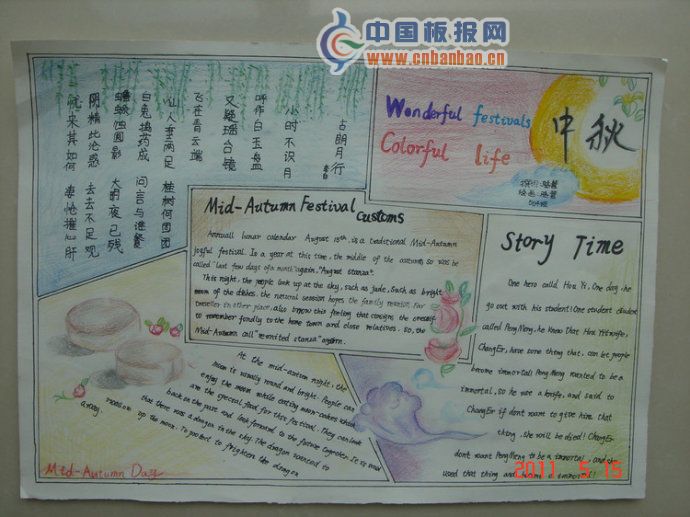 中国板报网
www.cnbanbao.cn
古朗月行
小时不识月
呼作白玉盘
又疑瑶台镜
飞在青云端
仙人垂两足 桂树何团团
白兔捣药成 问言与谁餐
蟾蜍蚀圆影 大明夜已残
阴精此沦惑 去去不足观
忧来其如何 凄怆摧心肝
Wonderful festivals
Colorful life
中秋
Mid-Autumn Festival
Customs
Annual lunar calendar August 15th, is a traditional Mid-Autumn
joyful festival. In a year at this time, the middle of the autumn, so was be
called "Last few days of a month" again, "August stanza".
This night, the people look up at the sky, such as jade, Such as bright
moon of the dishes, the natural session hopes the family reunion. Far
traveller in other place, also borrow this feeling that consigns the oneself
to remember fondly to the home town and close relatives. So, the
Mid-Autumn call "reunited stanza" again.
Story Time
One hero called Hou Yi, One day, he
go out with his student! One student
called PengMeng, he know that Hou Yi's wife,
ChangEr, have some thing that can let people
become immortal! PengMeng wanted to be a
immortal, so he use a knife, and said to
ChangEr if dont want to give him that
thing, she will be died! ChangEr
dont want PengMeng to be a immortal, and
used that thing and
At the mid-autumn night, the
moon is usually round and bright. People can
enjoy the moon while eating moon-cakes which
are the special food for this festival. They can look
back on the past and look forward to the future together. It is said
that there was a dragon in the sky. The dragon wanted to
up the moon. To protect to frighten the dragon
away.
Mid-Autumn Day
2011 5 15